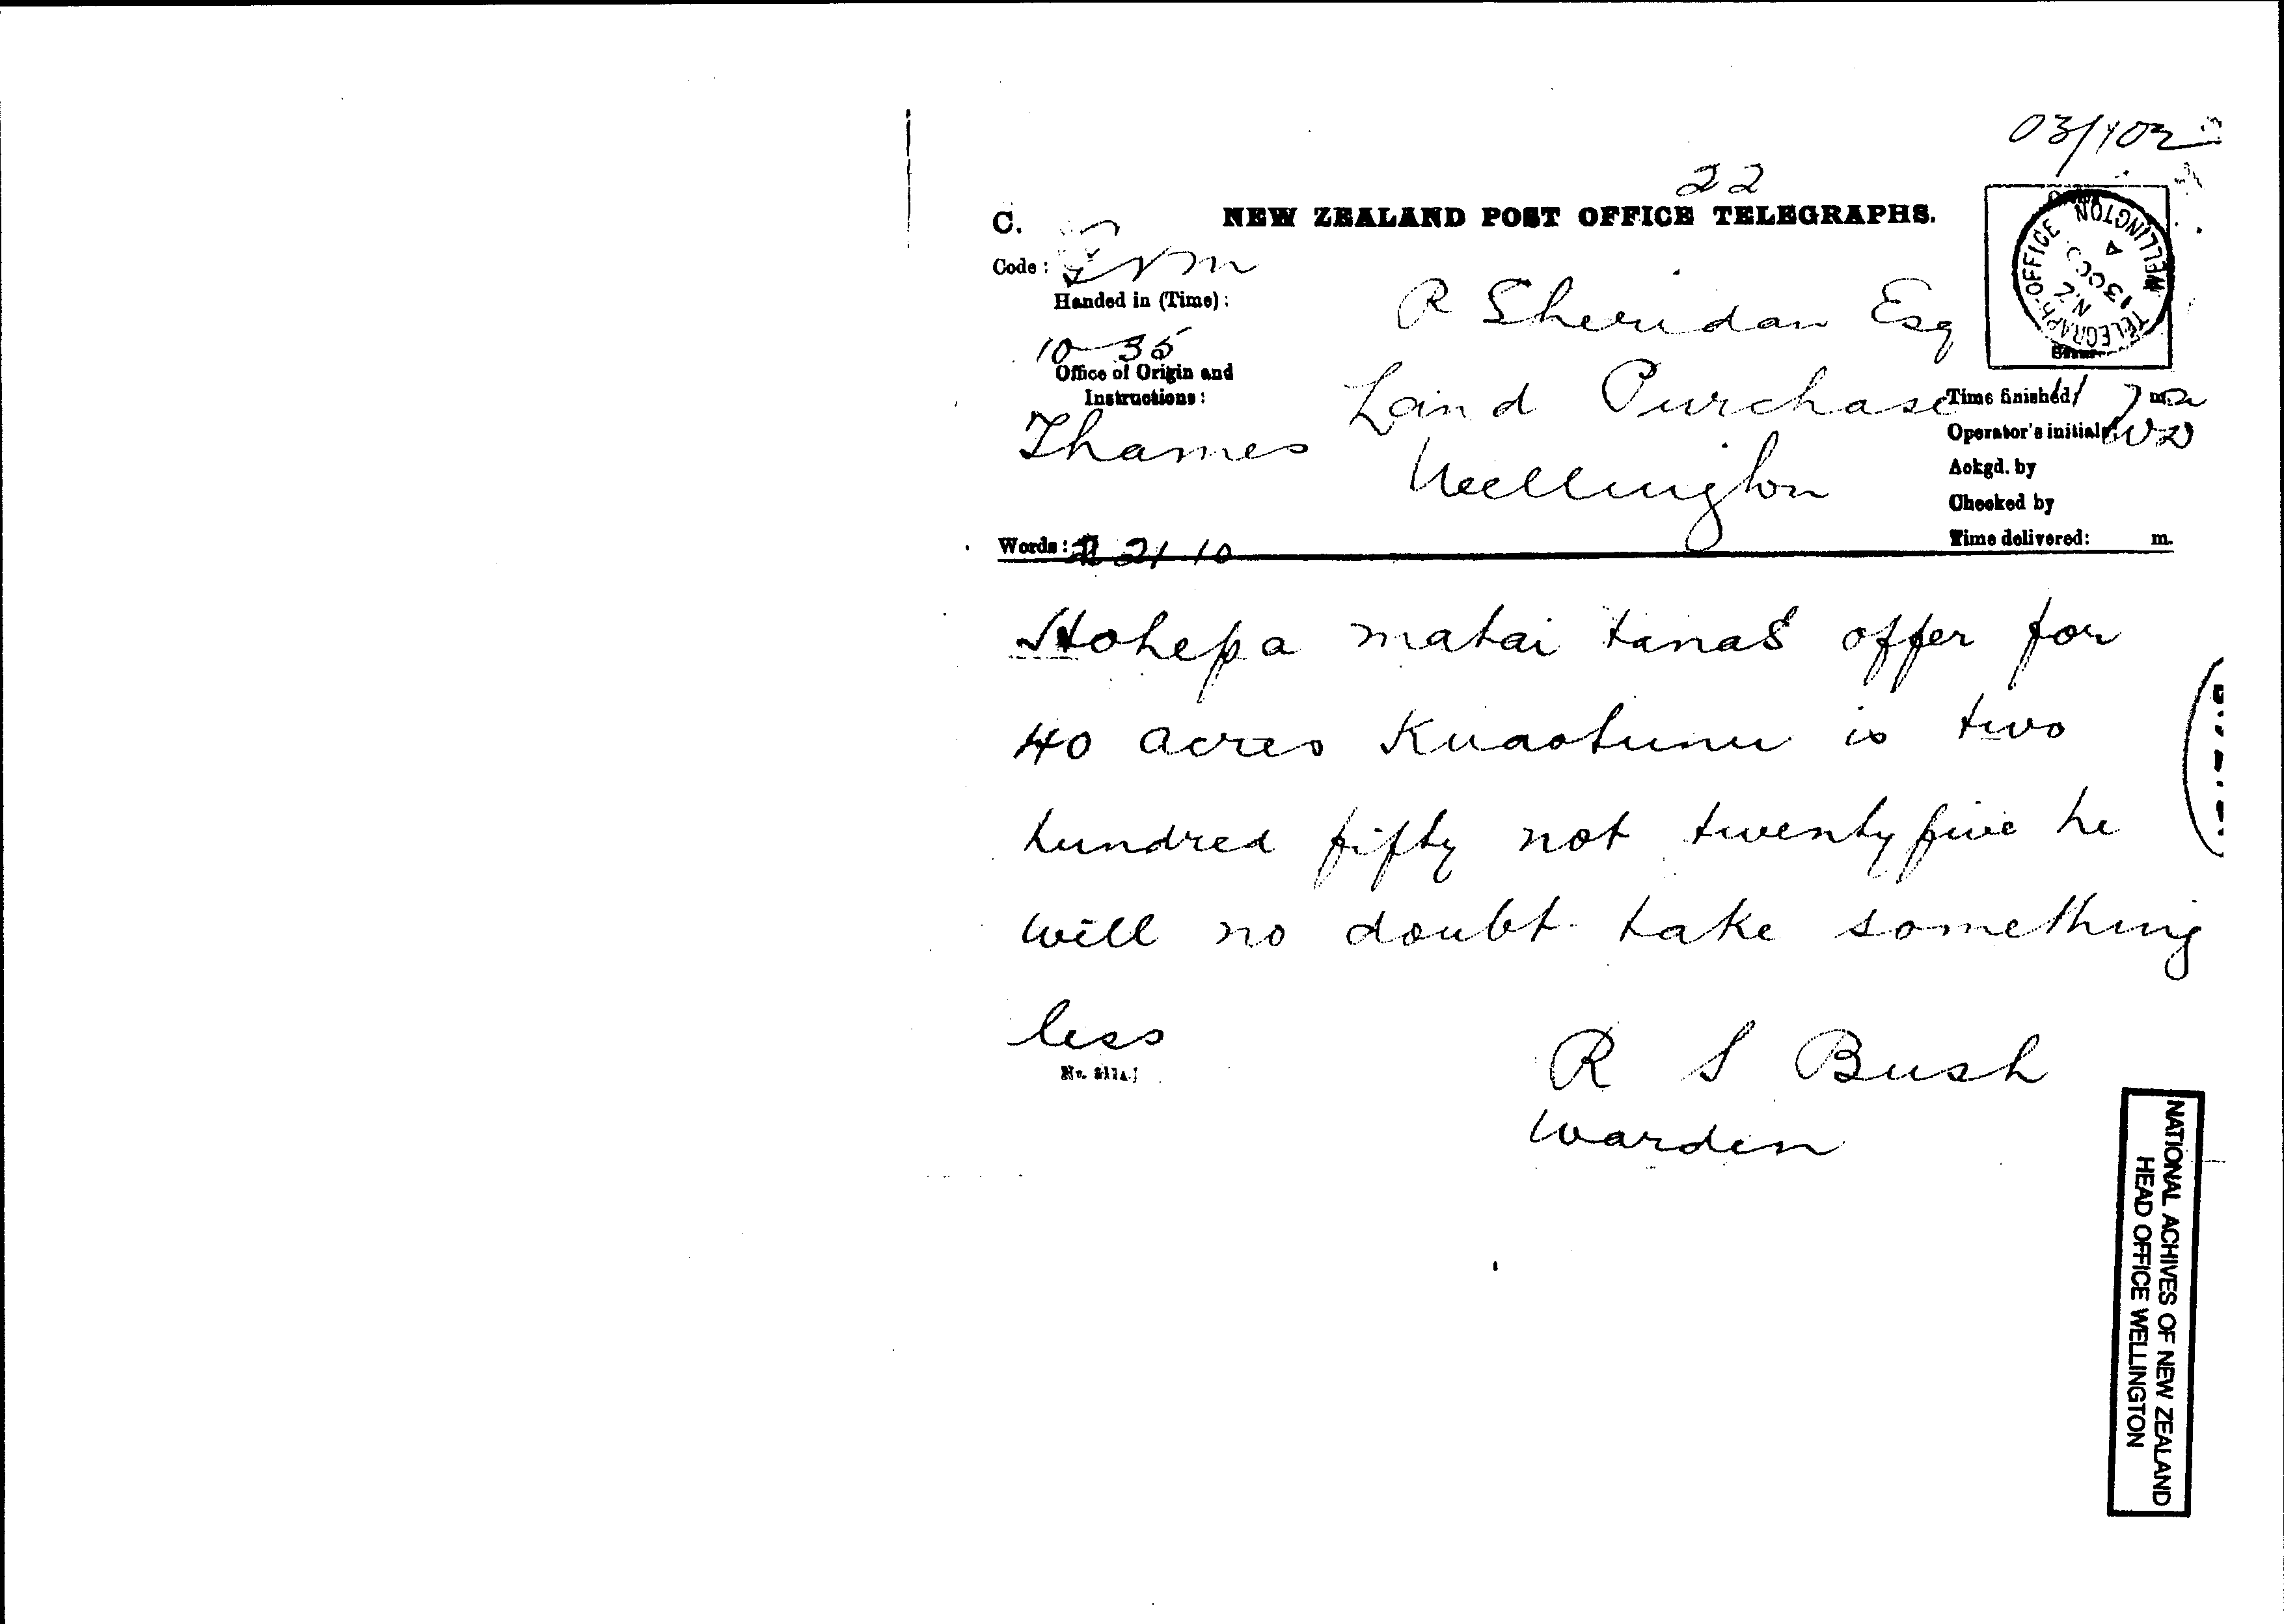 22
C.
NEW ZEALAND POST OFFICE TELEGRAPHS.
Code:
Handed in (Time):
10-35
Office of Origin and
Instructions:
Thames
R Sheridan Esq
Land Purchase
Wellington
TELEGRAPH-OFFICE WELLINGTON
N.Z.
Time finished
Operator's initials
Ackgd. by
Checked by
Time delivered: m.
Words: 21 10
Hohepa matai tanas offer for
40 acres Kuaotunu is two
hundred fifty not twentyfive he
will no doubt take something
less
R S Bush
Warden
NATIONAL ACHIVES OF NEW ZEALAND
HEAD OFFICE WELLINGTON